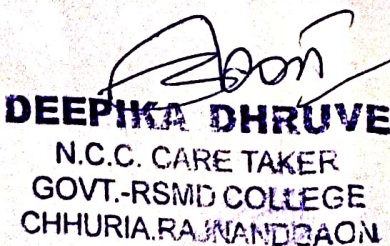 DEEPIKA DHRUVE
N.C.C. CARE TAKER
GOVT.-RSMD COLLEGE
CHHURIA.RAJNANDGAON